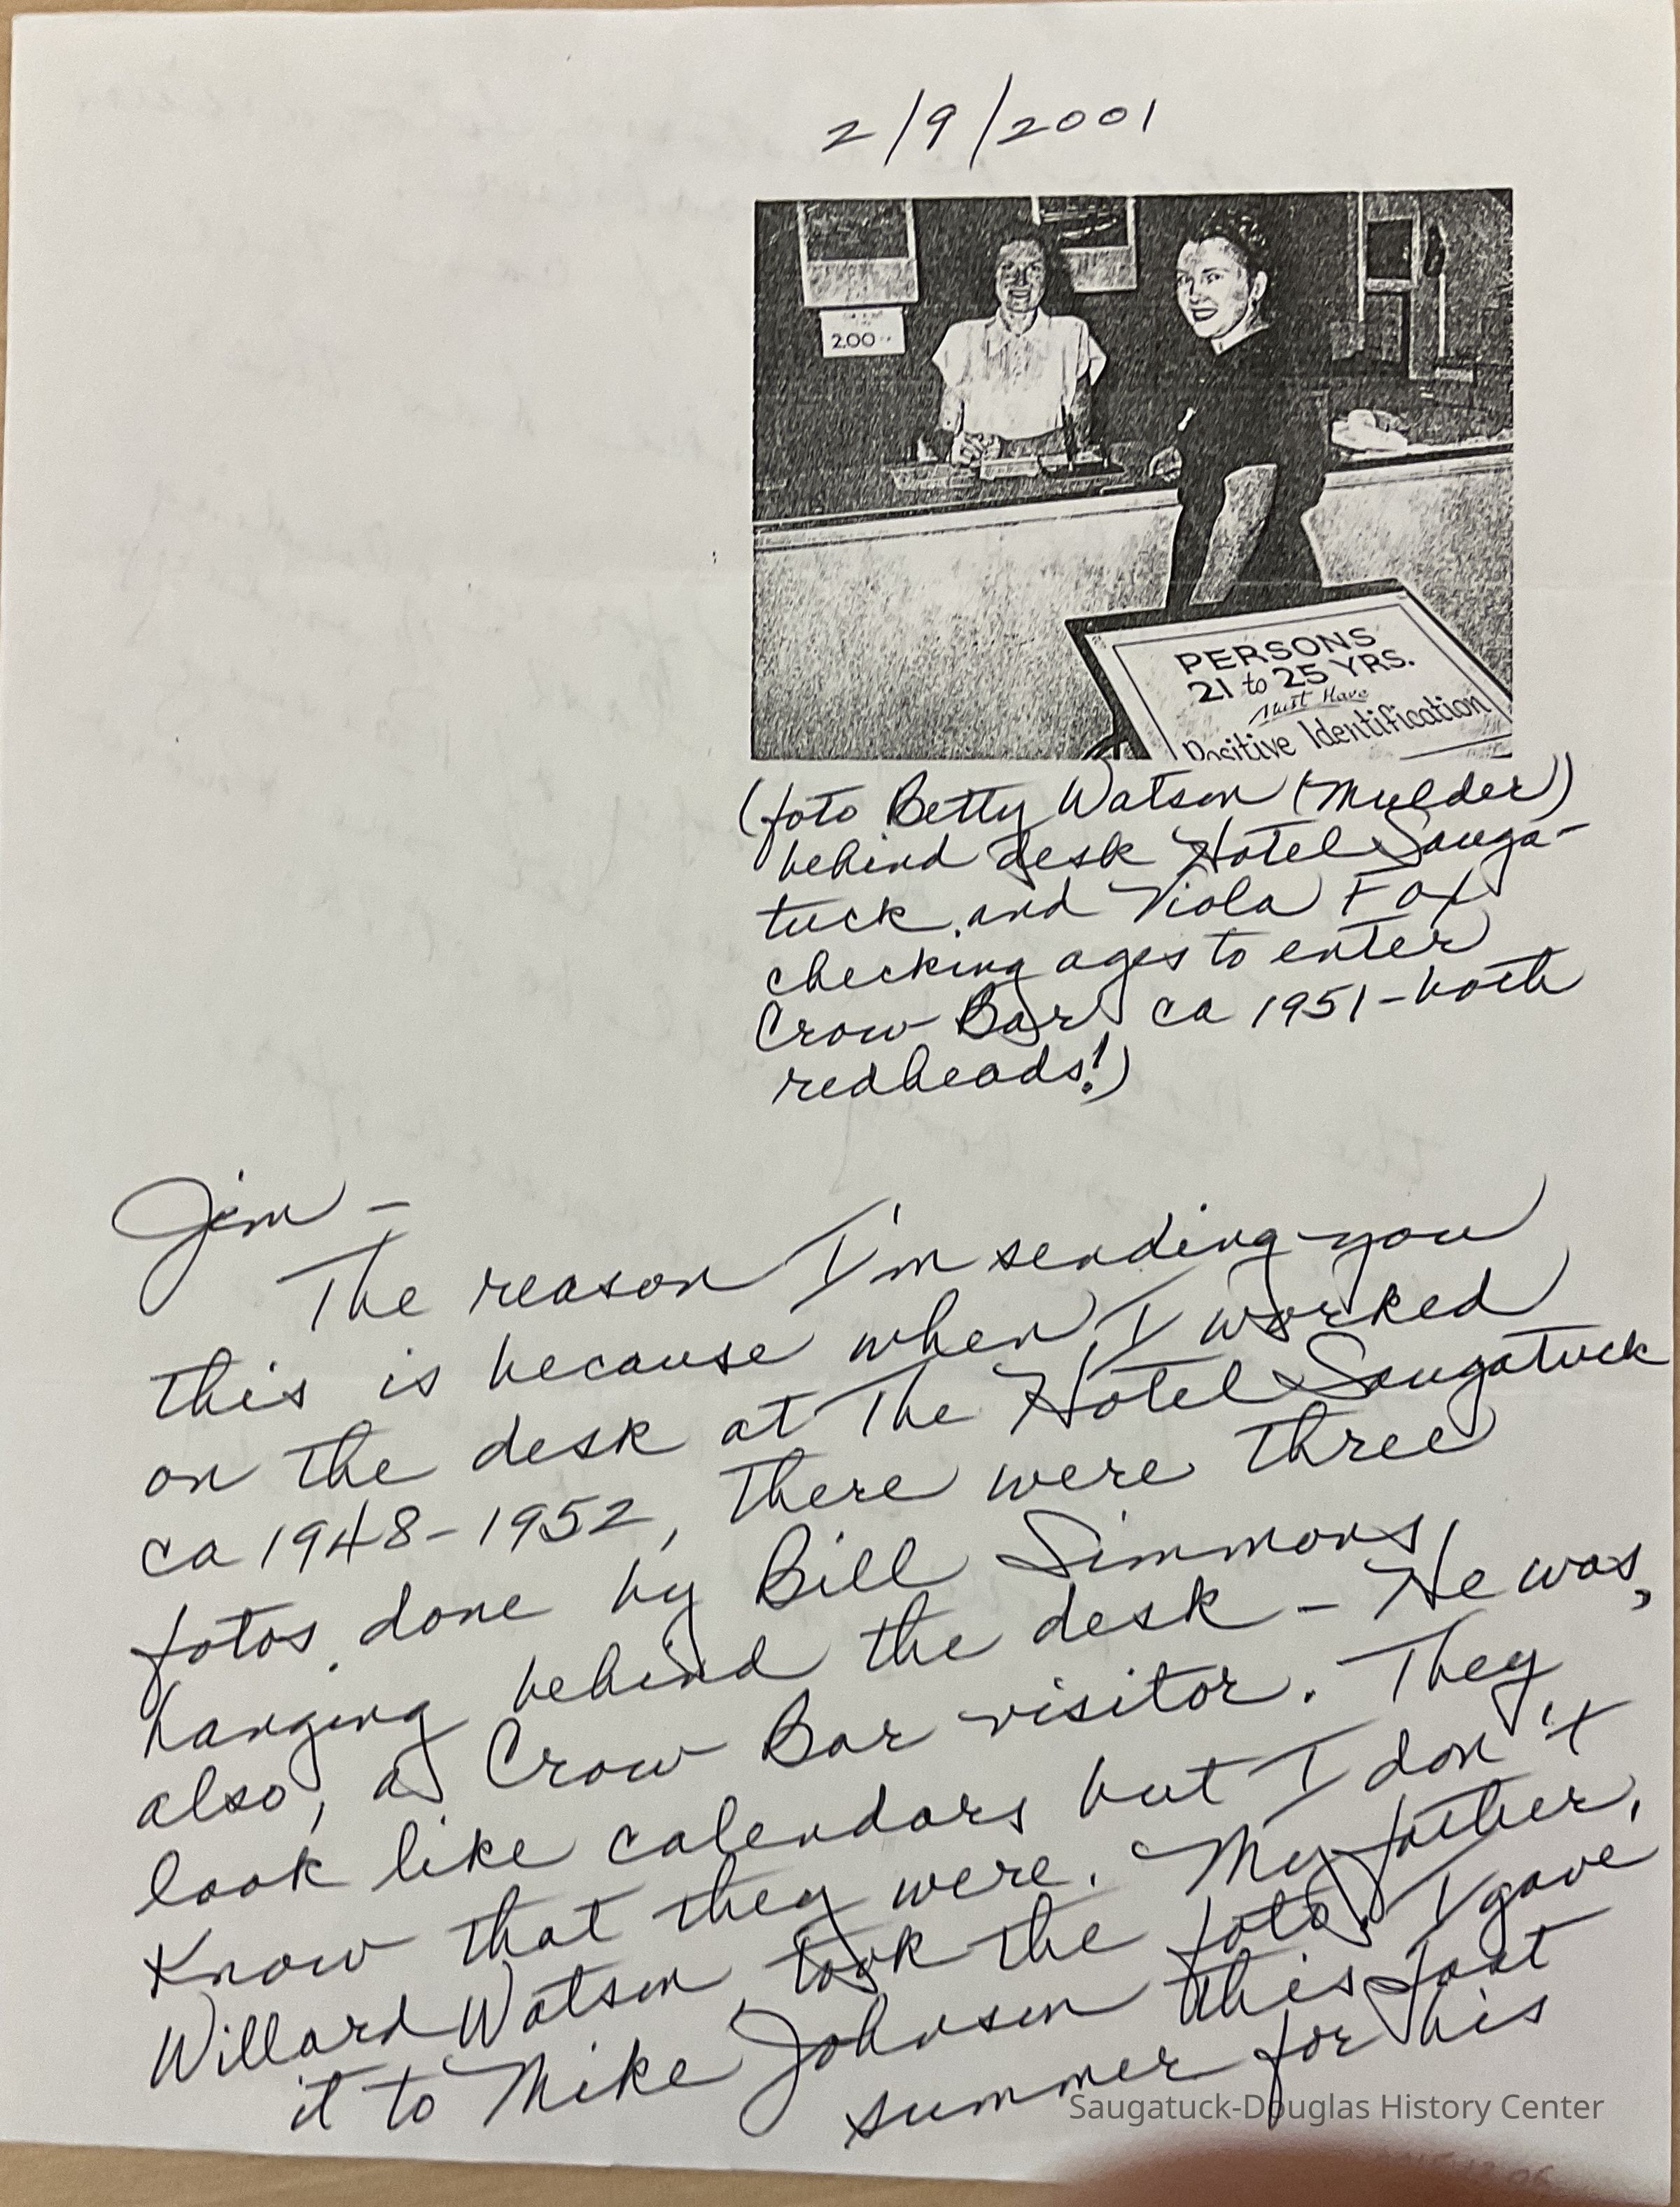 2/9/2001
2.00
PERSONS
21 to 25 YRS.
Must Have
Positive Identification
(foto Betty Watson (Mulder)
behind desk Hotel Sauga-
tuck and Viola Fox
checking ages to enter
Crow Bar ca 1951-both
redheads!)
Jim -
The reason I'm sending you
this is because when I worked
on the desk at The Hotel Saugatuck
ca 1948-1952, there were three
fotos done by Bill Simmons
hanging behind the desk - He was,
also, a Crow Bar visitor. They
look like calendars but I don't
know that they were. My father,
Willard Watson took the foto. I gave
it to Mike Johnson this past
summer for his
Saugatuck-Douglas History Center